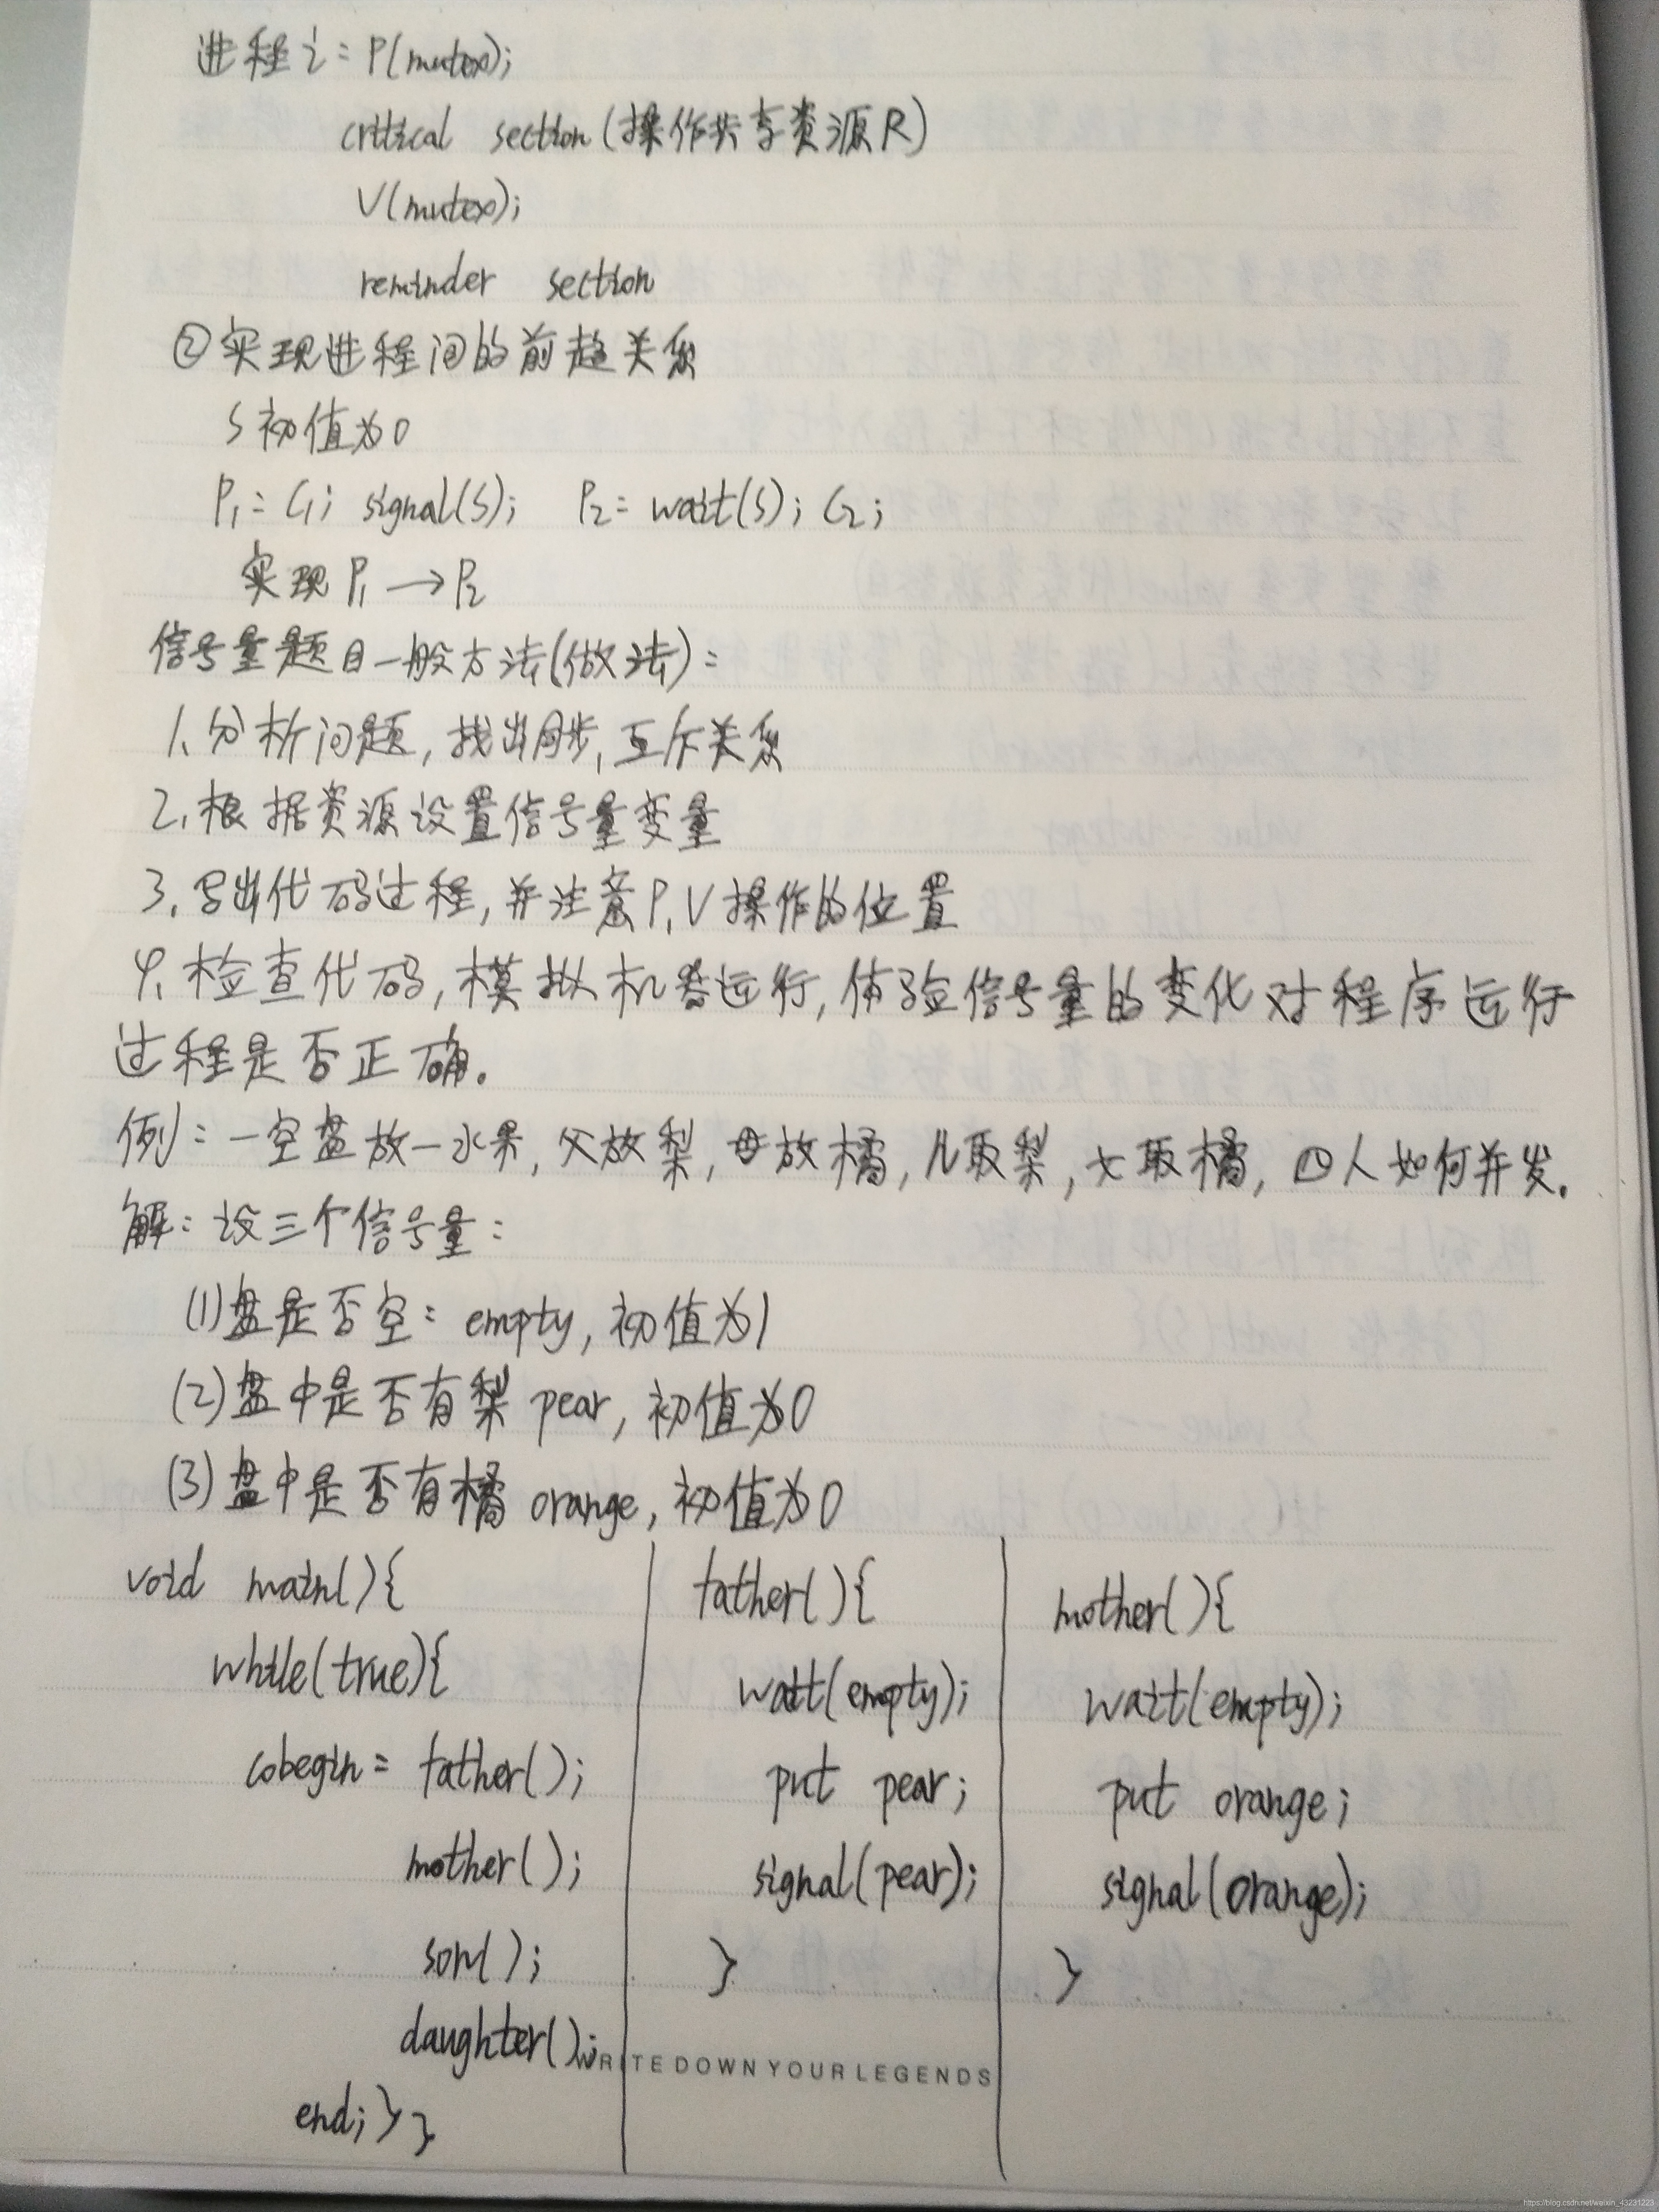 进程i: P(mutex);
critical section(操作共享资源R)
V(mutex);
reminder section
②实现进程间的前趋关系
S初值为0
P₁: C₁; signal(S); P₂: wait(S); C₂;
实现P₁→P₂
信号量题目一般方法(做法):
1、分析问题,找出同步,互斥关系
2、根据资源设置信号量变量
3、写出代码过程,并注意P、V操作的位置
4、检查代码,模拟机器运行,体验信号量的变化对程序运行
过程是否正确。
例:一空盘放一水果,父放梨,母放橘,儿取梨,女取橘,四人如何并发。
解:设三个信号量:
(1)盘是否空: empty,初值为1
(2)盘中是否有梨 pear,初值为0
(3)盘中是否有橘 orange,初值为0
void main(){
while(true){
cobegin: father();
mother();
son();
daughter();
end; } }
father(){
wait(empty);
put pear;
signal(pear);
}
mother(){
wait(empty);
put orange;
signal(orange);
}
WRITE DOWN YOUR LEGENDS
https://blog.csdn.net/weixin_43231223